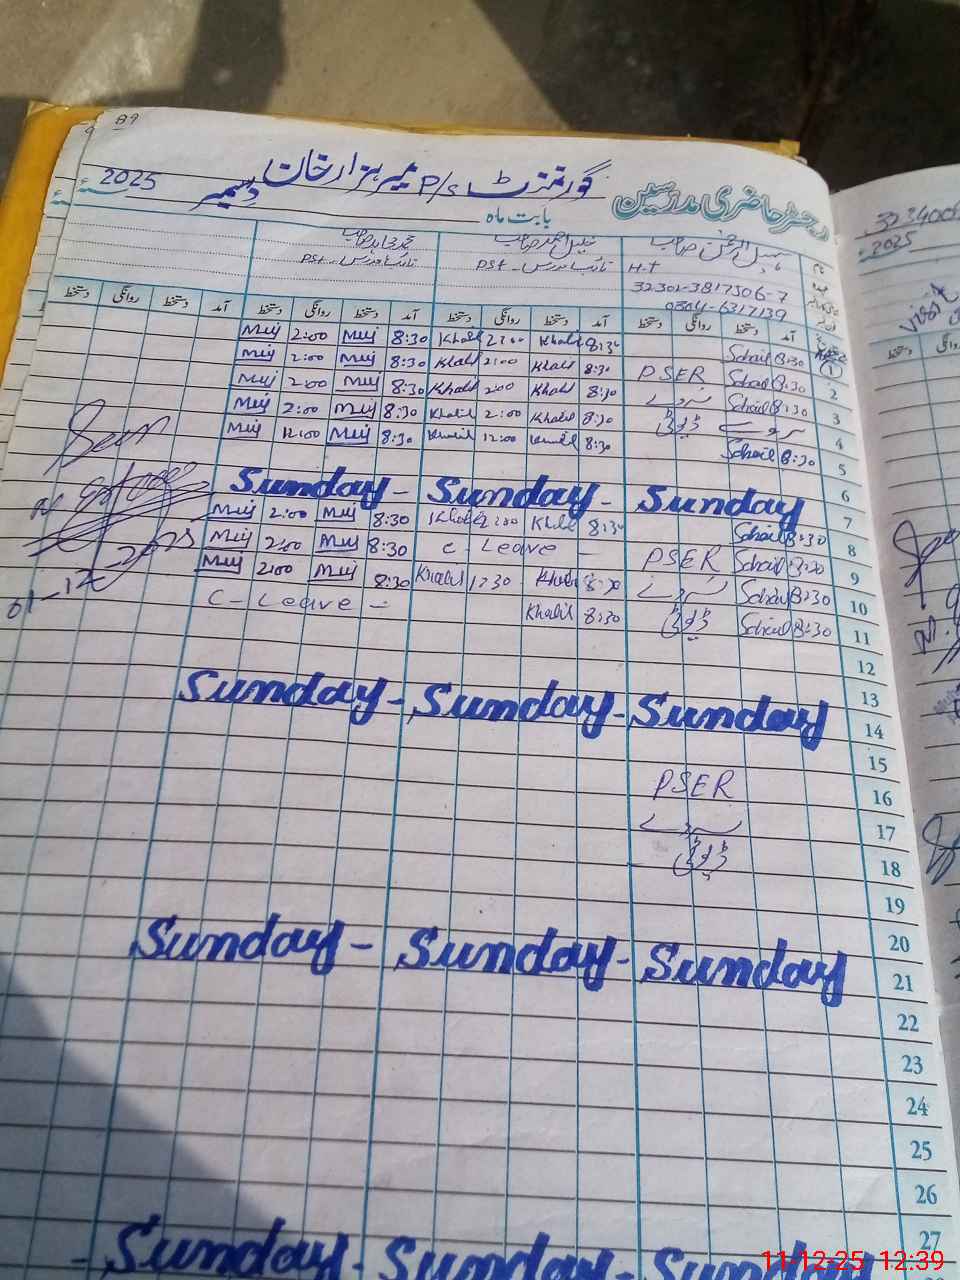 89
گورنمنٹ P/S میر ہزار خان
رجسٹر حاضری مدرسین
بابت ماہ دسمبر 2025ء
سہیل الرحمن صاحب خلیل احمد صاحب محمد مجاہد صاحب
H.T نائب مدرس - PST نائب مدرس - PST
32302-3817506-7
0304-6317139
آمد دستخط روانگی دستخط آمد دستخط روانگی دستخط آمد دستخط روانگی دستخط آمد دستخط روانگی دستخط
1 8:30 Sohail 8:30 Khalil 2:00 Khalil 8:30 Muj 2:00 Muj
2 8:30 Sohail PSER 8:30 Khalil 2:00 Khalil 8:30 Muj 2:00 Muj
3 8:30 Sohail سروے 8:30 Khalil 2:00 Khalil 8:30 Muj 2:00 Muj
4 سروے ڈیوٹی 8:30 Khalil 2:00 Khalil 8:30 Muj 2:00 Muj
5 Sohail 8:30 8:30 Khalil 12:00 Khalil 8:30 Muj 12:00 Muj
6
7 Sunday - Sunday - Sunday
8 8:30 Sohail 8:30 Khalil 2:00 Khalil 8:30 Muj 2:00 Muj
9 8:30 Sohail PSER C-Leave - 8:30 Muj 2:00 Muj
10 8:30 Sohail سروے 8:30 Khalil 1:30 Khalil 8:30 Muj 2:00 Muj
11 8:30 Sohail ڈیوٹی 8:30 Khalil C-Leave -
12
13
14 Sunday - Sunday - Sunday
15
16 PSER
17 سروے
18 ڈیوٹی
19
20
21 Sunday - Sunday - Sunday
22
23
24
25
26
27
Sunday - Sunday - Sunday
Seen
01-12-2025
2025
Visit
11/12/25 12:39